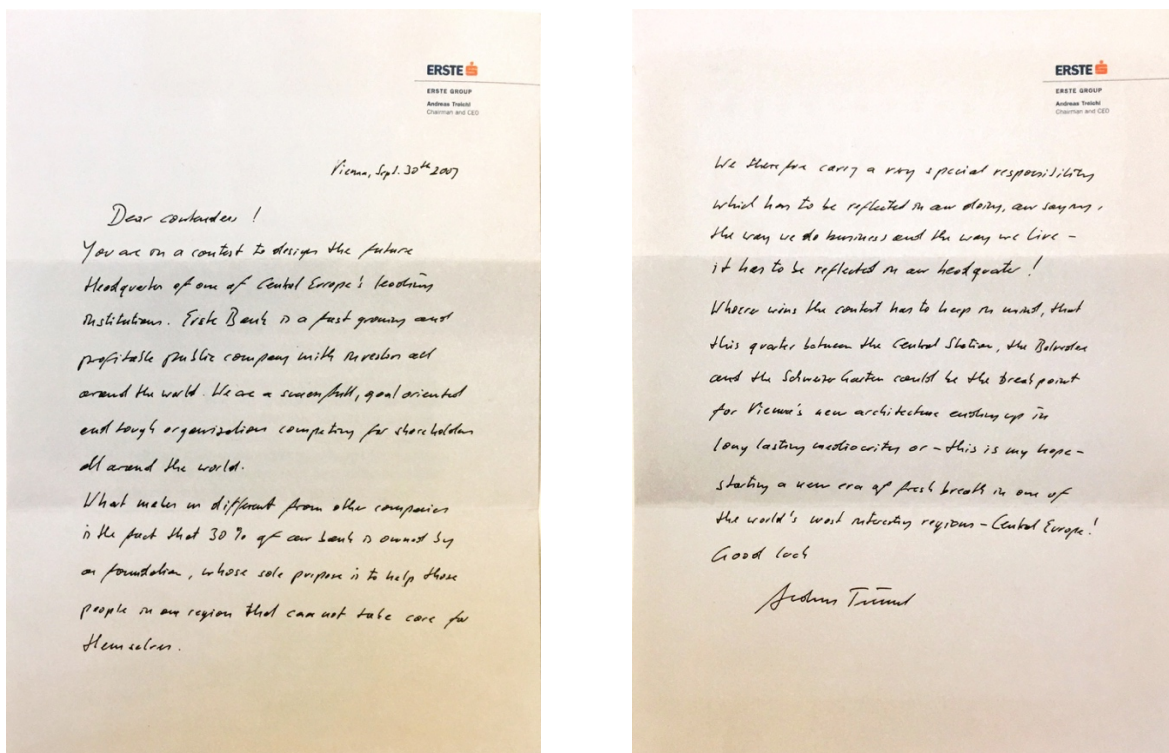 ERSTE
ERSTE GROUP
Andreas Treichl
Chairman and CEO
Vienna, Sept. 30th 2007
Dear contenders!
You are on a contest to design the future
Headquater of one of Central Europe's leading
institutions. Erste Bank is a fast growing and
profitable public company with investors all
around the world. We are a successfull, goal oriented
and tough organizations competing for shareholders
all around the world.
What makes us different from other companies
is the fact that 30% of our bank is owned by
a foundation, whose sole purpose is to help those
people in our region that can not take care for
themselves.
ERSTE
ERSTE GROUP
Andreas Treichl
Chairman and CEO
We therefore carry a very special responsibility
which has to be reflected in our doing, our saying,
the way we do business and the way we live –
it has to be reflected in our headquater!
Whoever wins the contest has to keep in mind, that
this quater between the Central Station, the Belvedere
and the Schweizer Garten could be the breakpoint
for Vienna's new architecture ending up in
long lasting mediocrity or – this is my hope –
starting a new era of fresh breath in one of
the world's most interesting regions – Central Europe!
Good luck
Andreas Treichl